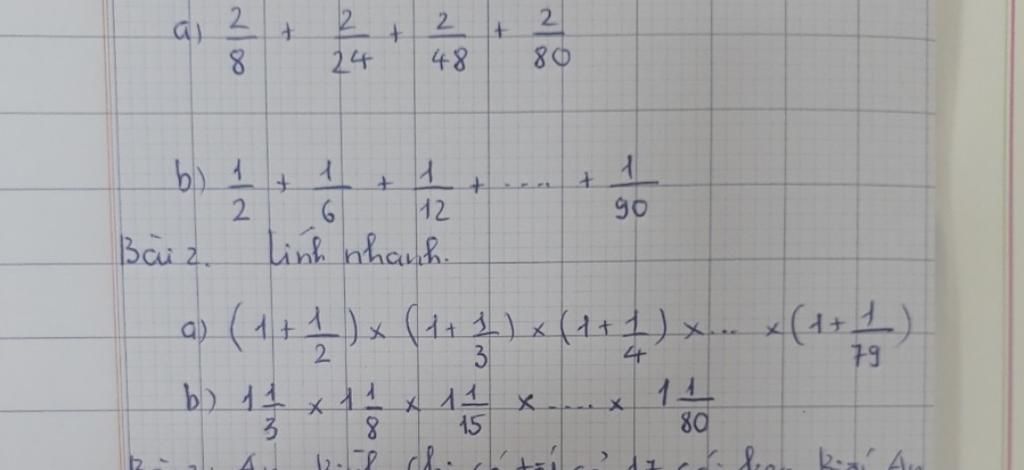 a) 2/8 + 2/24 + 2/48 + 2/80
b) 1/2 + 1/6 + 1/12 + .... + 1/90
Bài 2. Tính nhanh.
a) (1 + 1/2) × (1 + 1/3) × (1 + 1/4) × ... × (1 + 1/79)
b) 1 1/3 × 1 1/8 × 1 1/15 × .... × 1 1/80